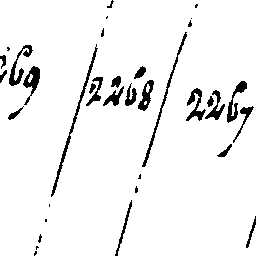 269 2268 2267